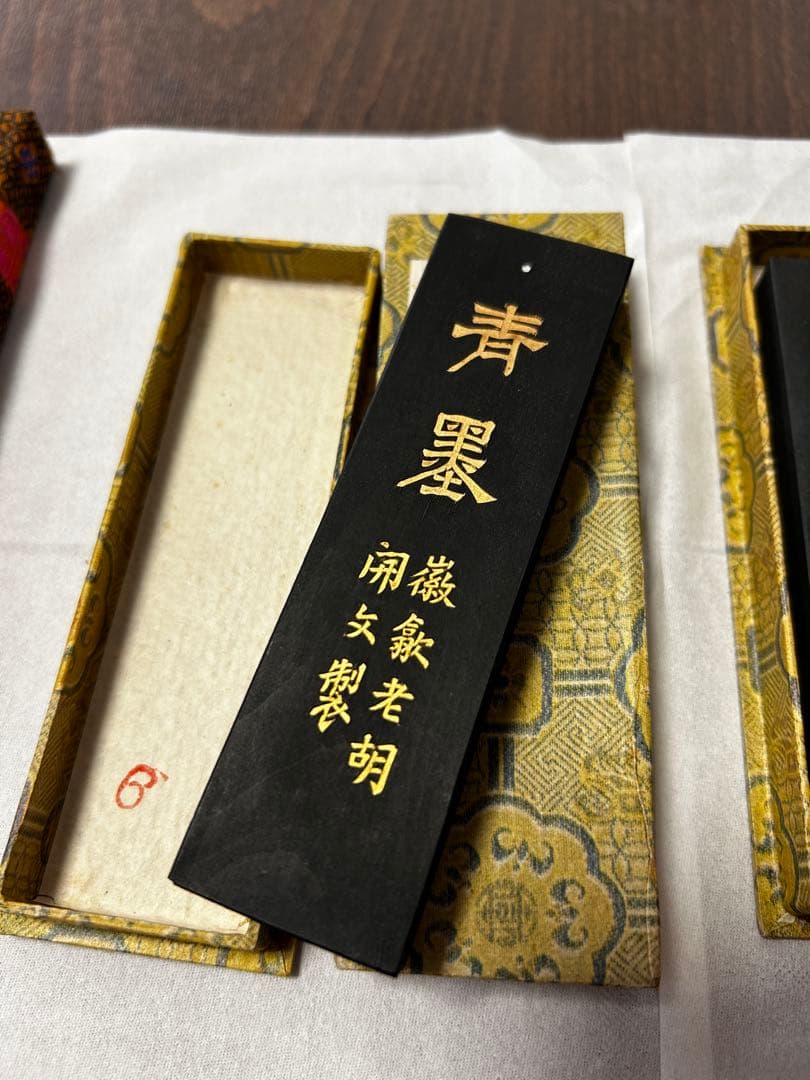 青墨
徽歙老胡
開文製
6